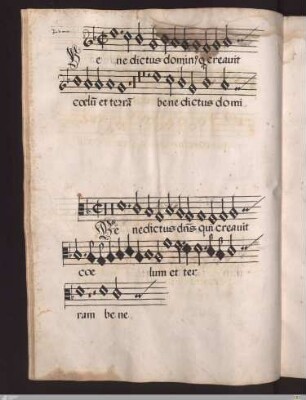 Be ne dictus dominus q creavit
cœlũ et terrã bene dictus domi
Be nedictus dñs qui creavit
cœ lum et ter
ram bene